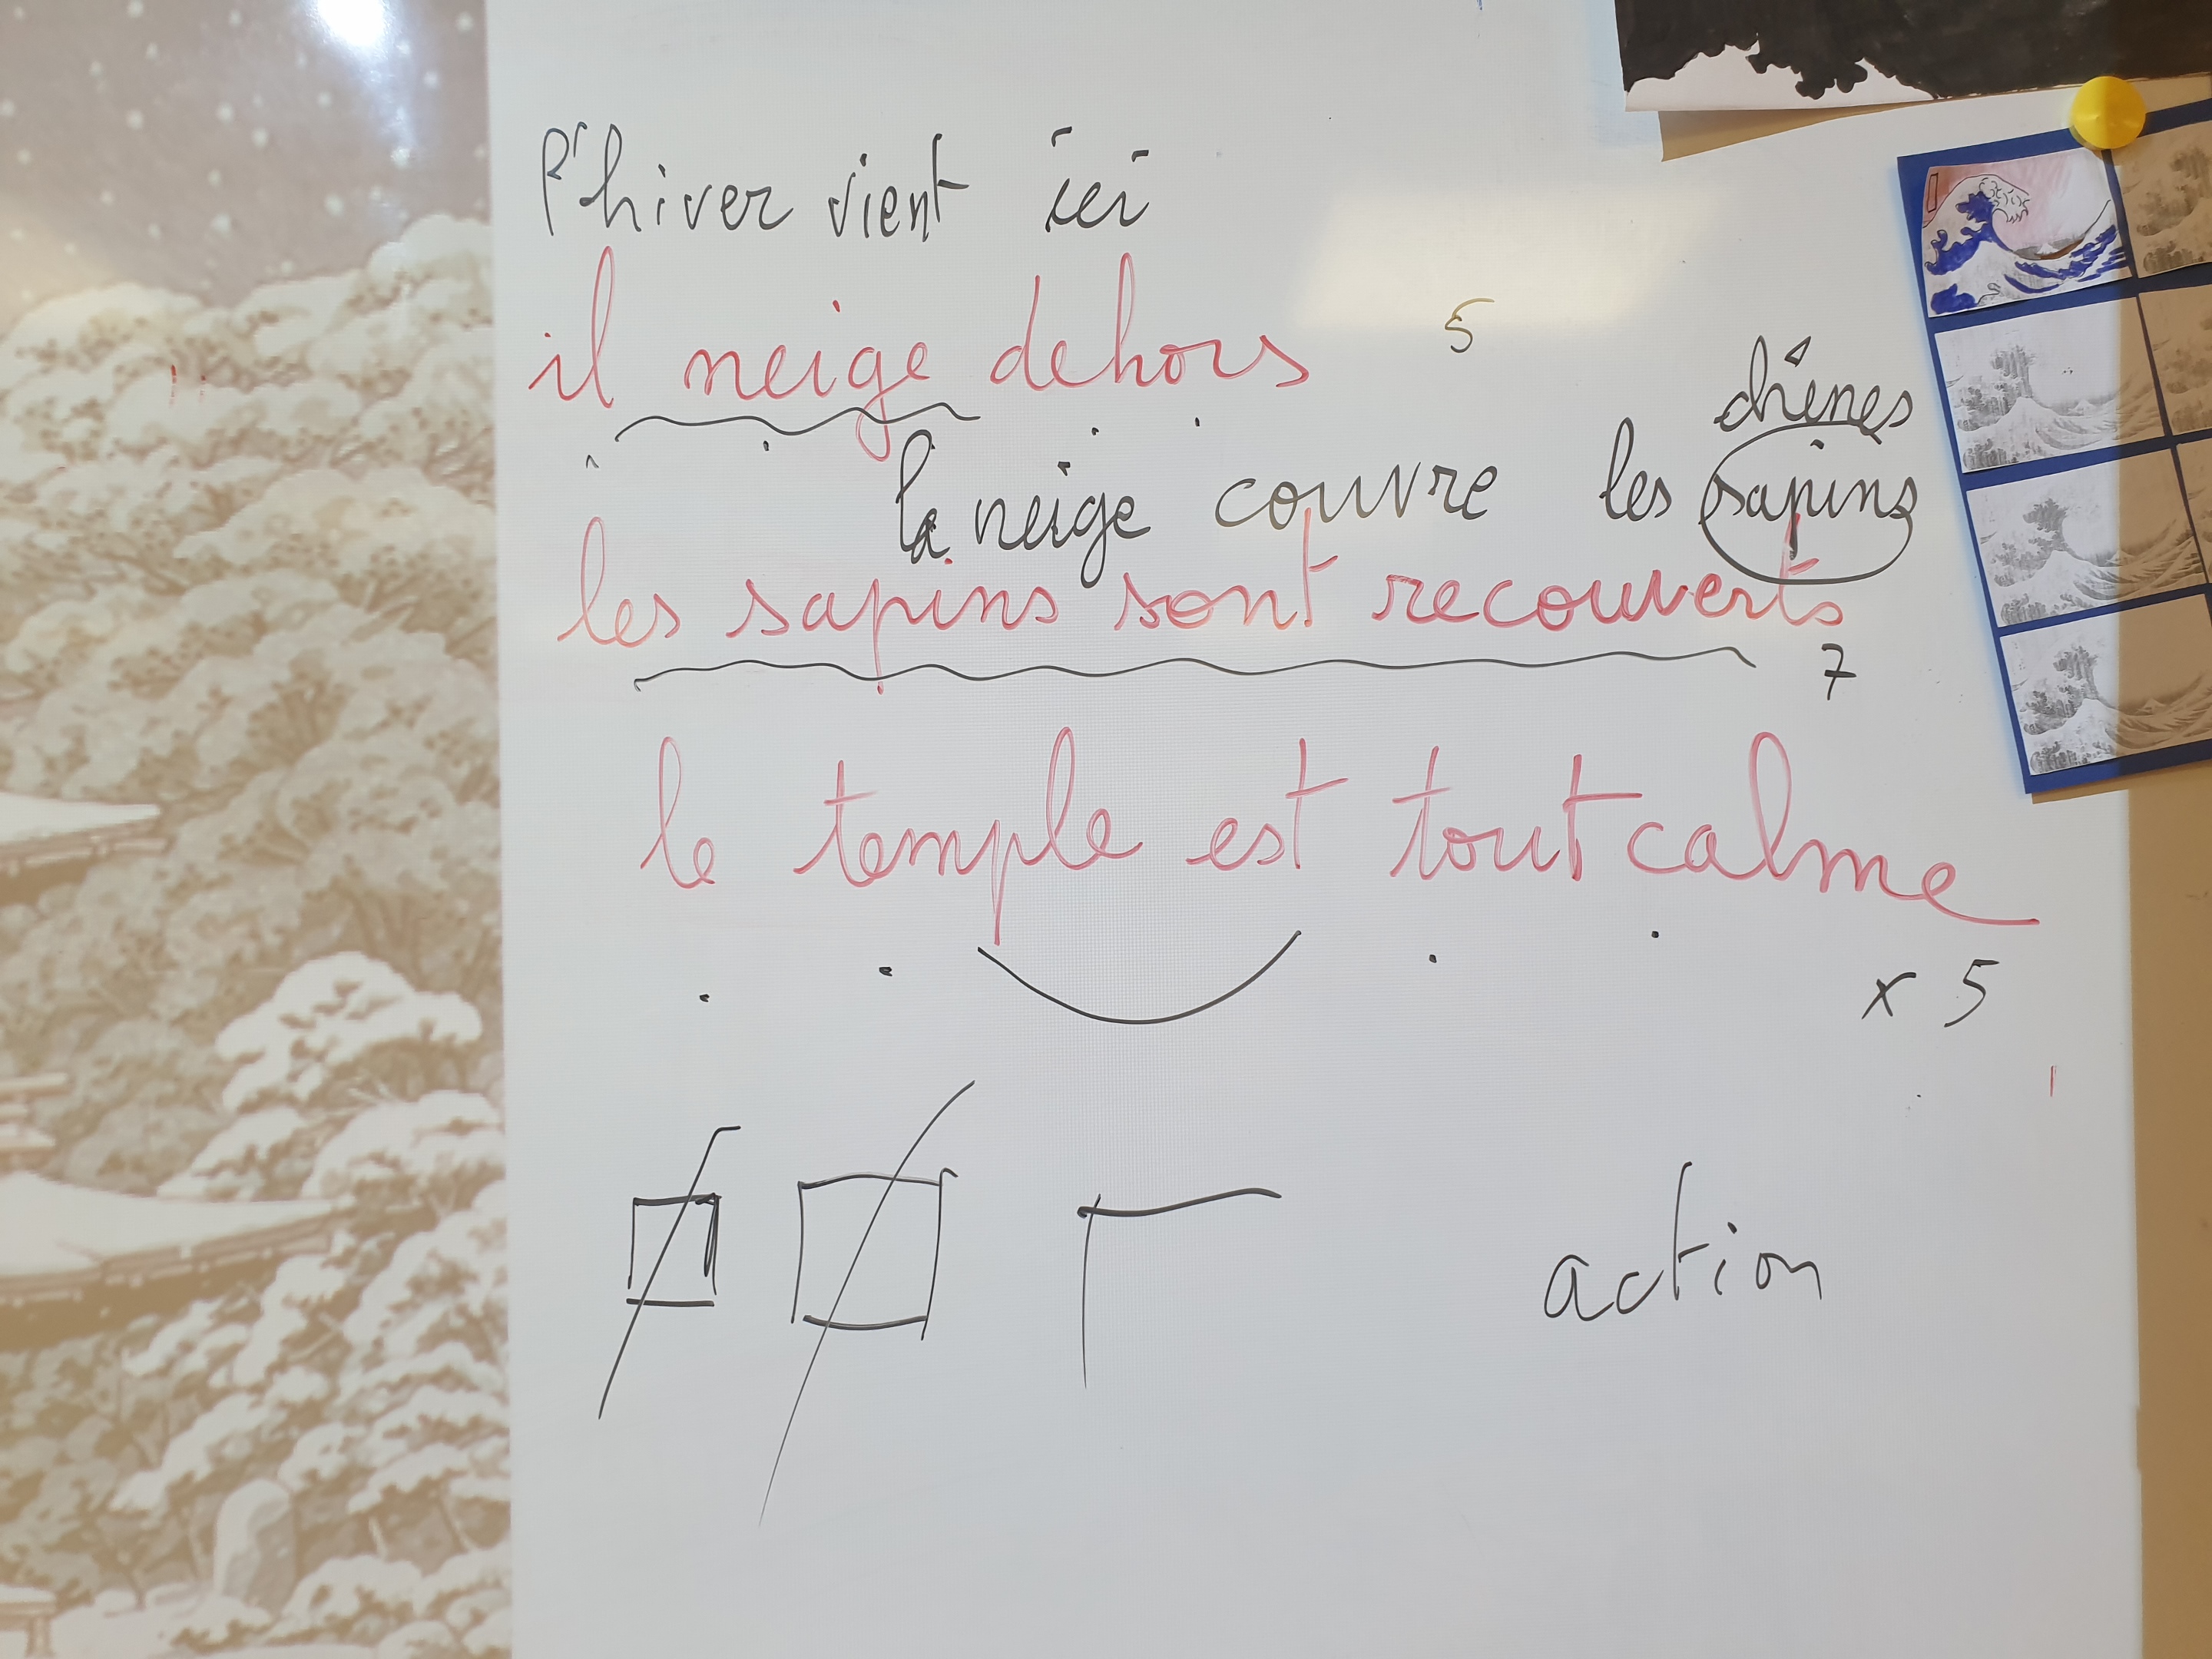 l'hiver vient ici
il neige dehors 5
chênes
la neige couvre les sapins
les sapins sont recouverts
7
le temple est tout calme
x 5
action